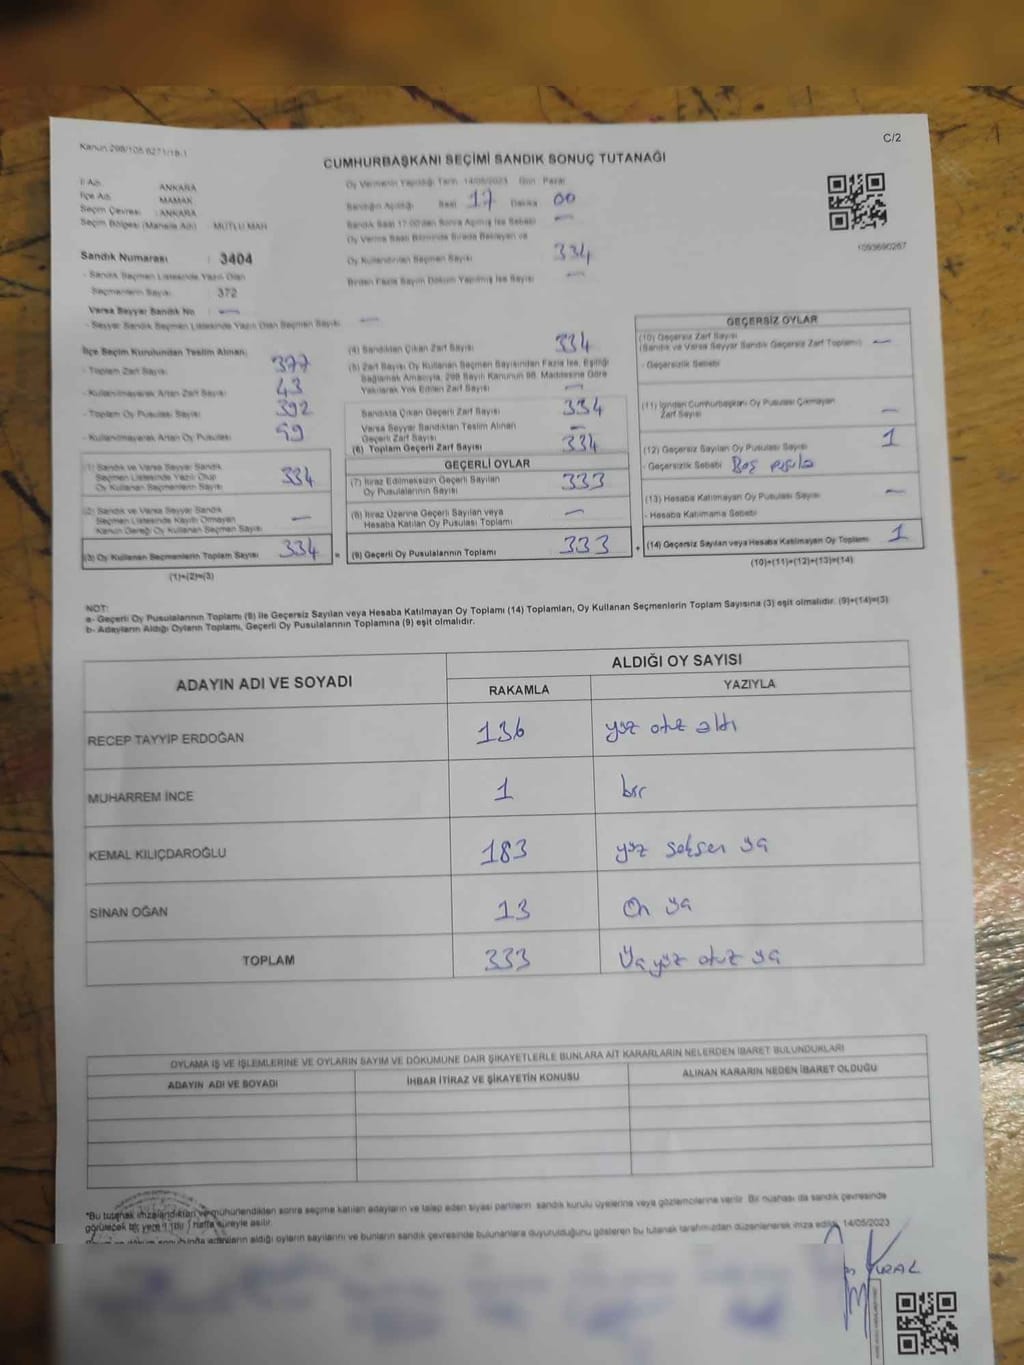 Kanun 298/105 6271/18.1
C/2
CUMHURBAŞKANI SEÇİMİ SANDIK SONUÇ TUTANAĞI
İl Adı : ANKARA
İlçe Adı : MAMAK
Seçim Çevresi : ANKARA
Seçim Bölgesi (Mahalle Adı) : MUTLU MAH
Sandık Numarası : 3404
- Sandık Seçmen Listesinde Yazılı Olan
Seçmenlerin Sayısı : 372
Varsa Seyyar Sandık No : —
- Seyyar Sandık Seçmen Listesinde Yazılı Olan Seçmen Sayısı —
Oy Vermenin Yapıldığı Tarih 14/05/2023 Gün Pazar
Sandığın Açıldığı Saat 17 Dakika 00
Sandık Saat 17.00'den Sonra Açılmış İse Sebebi —
Oy Verme Saati Bitiminde Sırada Bekleyen ve
Oy Kullandırılan Seçmen Sayısı 334
Birden Fazla Sayım Döküm Yapılmış İse Sayısı —
1093690267
İlçe Seçim Kurulundan Teslim Alınan:
- Toplam Zarf Sayısı 377
- Kullanılmayarak Artan Zarf Sayısı 43
- Toplam Oy Pusulası Sayısı 392
- Kullanılmayarak Artan Oy Pusulası
(1) Sandık ve Varsa Seyyar Sandık
Seçmen Listesinde Yazılı Olup
Oy Kullanan Seçmenlerin Sayısı 334
(2) Sandık ve Varsa Seyyar Sandık
Seçmen Listesinde Kayıtlı Olmayan
Kanun Gereği Oy Kullanan Seçmen Sayısı —
(3) Oy Kullanan Seçmenlerin Toplam Sayısı 334 =
(1)+(2)=(3)
(4) Sandıktan Çıkan Zarf Sayısı 334
(5) Zarf Sayısı Oy Kullanan Seçmen Sayısından Fazla İse, Eşitliği
Sağlamak Amacıyla, 298 Sayılı Kanunun 98. Maddesine Göre
Yakılarak Yok Edilen Zarf Sayısı —
Sandıkta Çıkan Geçerli Zarf Sayısı 334
Varsa Seyyar Sandıktan Teslim Alınan
Geçerli Zarf Sayısı —
(6) Toplam Geçerli Zarf Sayısı 334
GEÇERLİ OYLAR
(7) İtiraz Edilmeksizin Geçerli Sayılan
Oy Pusulalarının Sayısı 333
(8) İtiraz Üzerine Geçerli Sayılan veya
Hesaba Katılan Oy Pusulası Toplamı —
(9) Geçerli Oy Pusulalarının Toplamı 333 +
GEÇERSİZ OYLAR
(10) Geçersiz Zarf Sayısı
(Sandık ve Varsa Seyyar Sandık Geçersiz Zarf Toplamı) —
- Geçersizlik Sebebi
(11) İçinden Cumhurbaşkanı Oy Pusulası Çıkmayan
Zarf Sayısı —
(12) Geçersiz Sayılan Oy Pusulası Sayısı 1
- Geçersizlik Sebebi Boş pusula
(13) Hesaba Katılmayan Oy Pusulası Sayısı —
- Hesaba Katılmama Sebebi
(14) Geçersiz Sayılan veya Hesaba Katılmayan Oy Toplamı 1
(10)+(11)+(12)+(13)=(14)
NOT:
a- Geçerli Oy Pusulalarının Toplamı (9) ile Geçersiz Sayılan veya Hesaba Katılmayan Oy Toplamı (14) Toplamları, Oy Kullanan Seçmenlerin Toplam Sayısına (3) eşit olmalıdır. (9)+(14)=(3)
b- Adayların Aldığı Oyların Toplamı, Geçerli Oy Pusulalarının Toplamına (9) eşit olmalıdır.
ADAYIN ADI VE SOYADI
ALDIĞI OY SAYISI
RAKAMLA YAZIYLA
RECEP TAYYİP ERDOĞAN 136 yüz otuz altı
MUHARREM İNCE 1 bir
KEMAL KILIÇDAROĞLU 183 yüz seksen üç
SİNAN OĞAN 13 On üç
TOPLAM 333 Üç yüz otuz üç
OYLAMA İŞ VE İŞLEMLERİNE VE OYLARIN SAYIM VE DÖKÜMÜNE DAİR ŞİKAYETLERLE BUNLARA AİT KARARLARIN NELERDEN İBARET BULUNDUKLARI
ADAYIN ADI VE SOYADI İHBAR İTİRAZ VE ŞİKAYETİN KONUSU ALINAN KARARIN NEDEN İBARET OLDUĞU
*Bu tutanak imzalandıktan ve mühürlendikten sonra seçime katılan adayların ve talep eden siyasi partilerin sandık kurulu üyelerine veya gözlemcilerine verilir. Bir nüshası da sandık çevresinde
görülecek bir yere 1 (bir) hafta süreyle asılır.
adayların aldığı oyların sayılarını ve bunların sandık çevresinde bulunanlara duyurulduğunu gösteren bu tutanak tarafımızdan düzenlenerek imza edildi. 14/05/2023